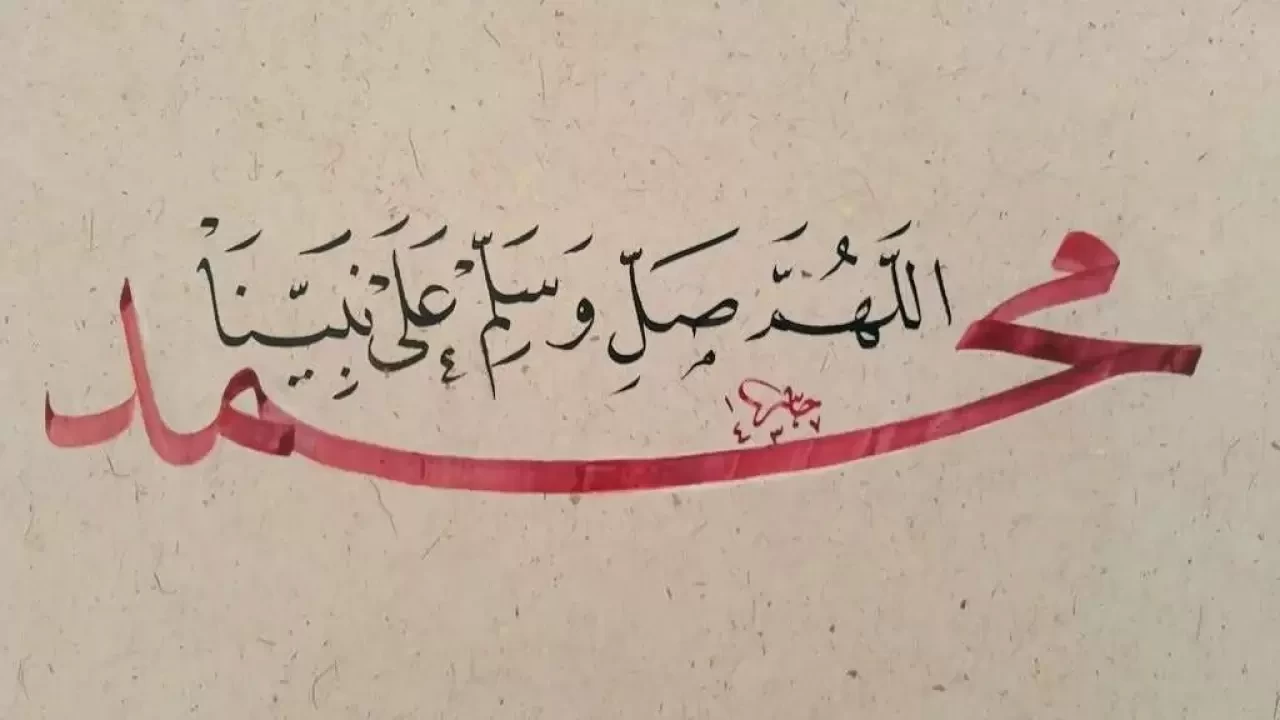 اللَّهُمَّ صَلِّ وَسَلِّمْ عَلَىٰ نَبِيِّنَا
محمد
١٤٣٧